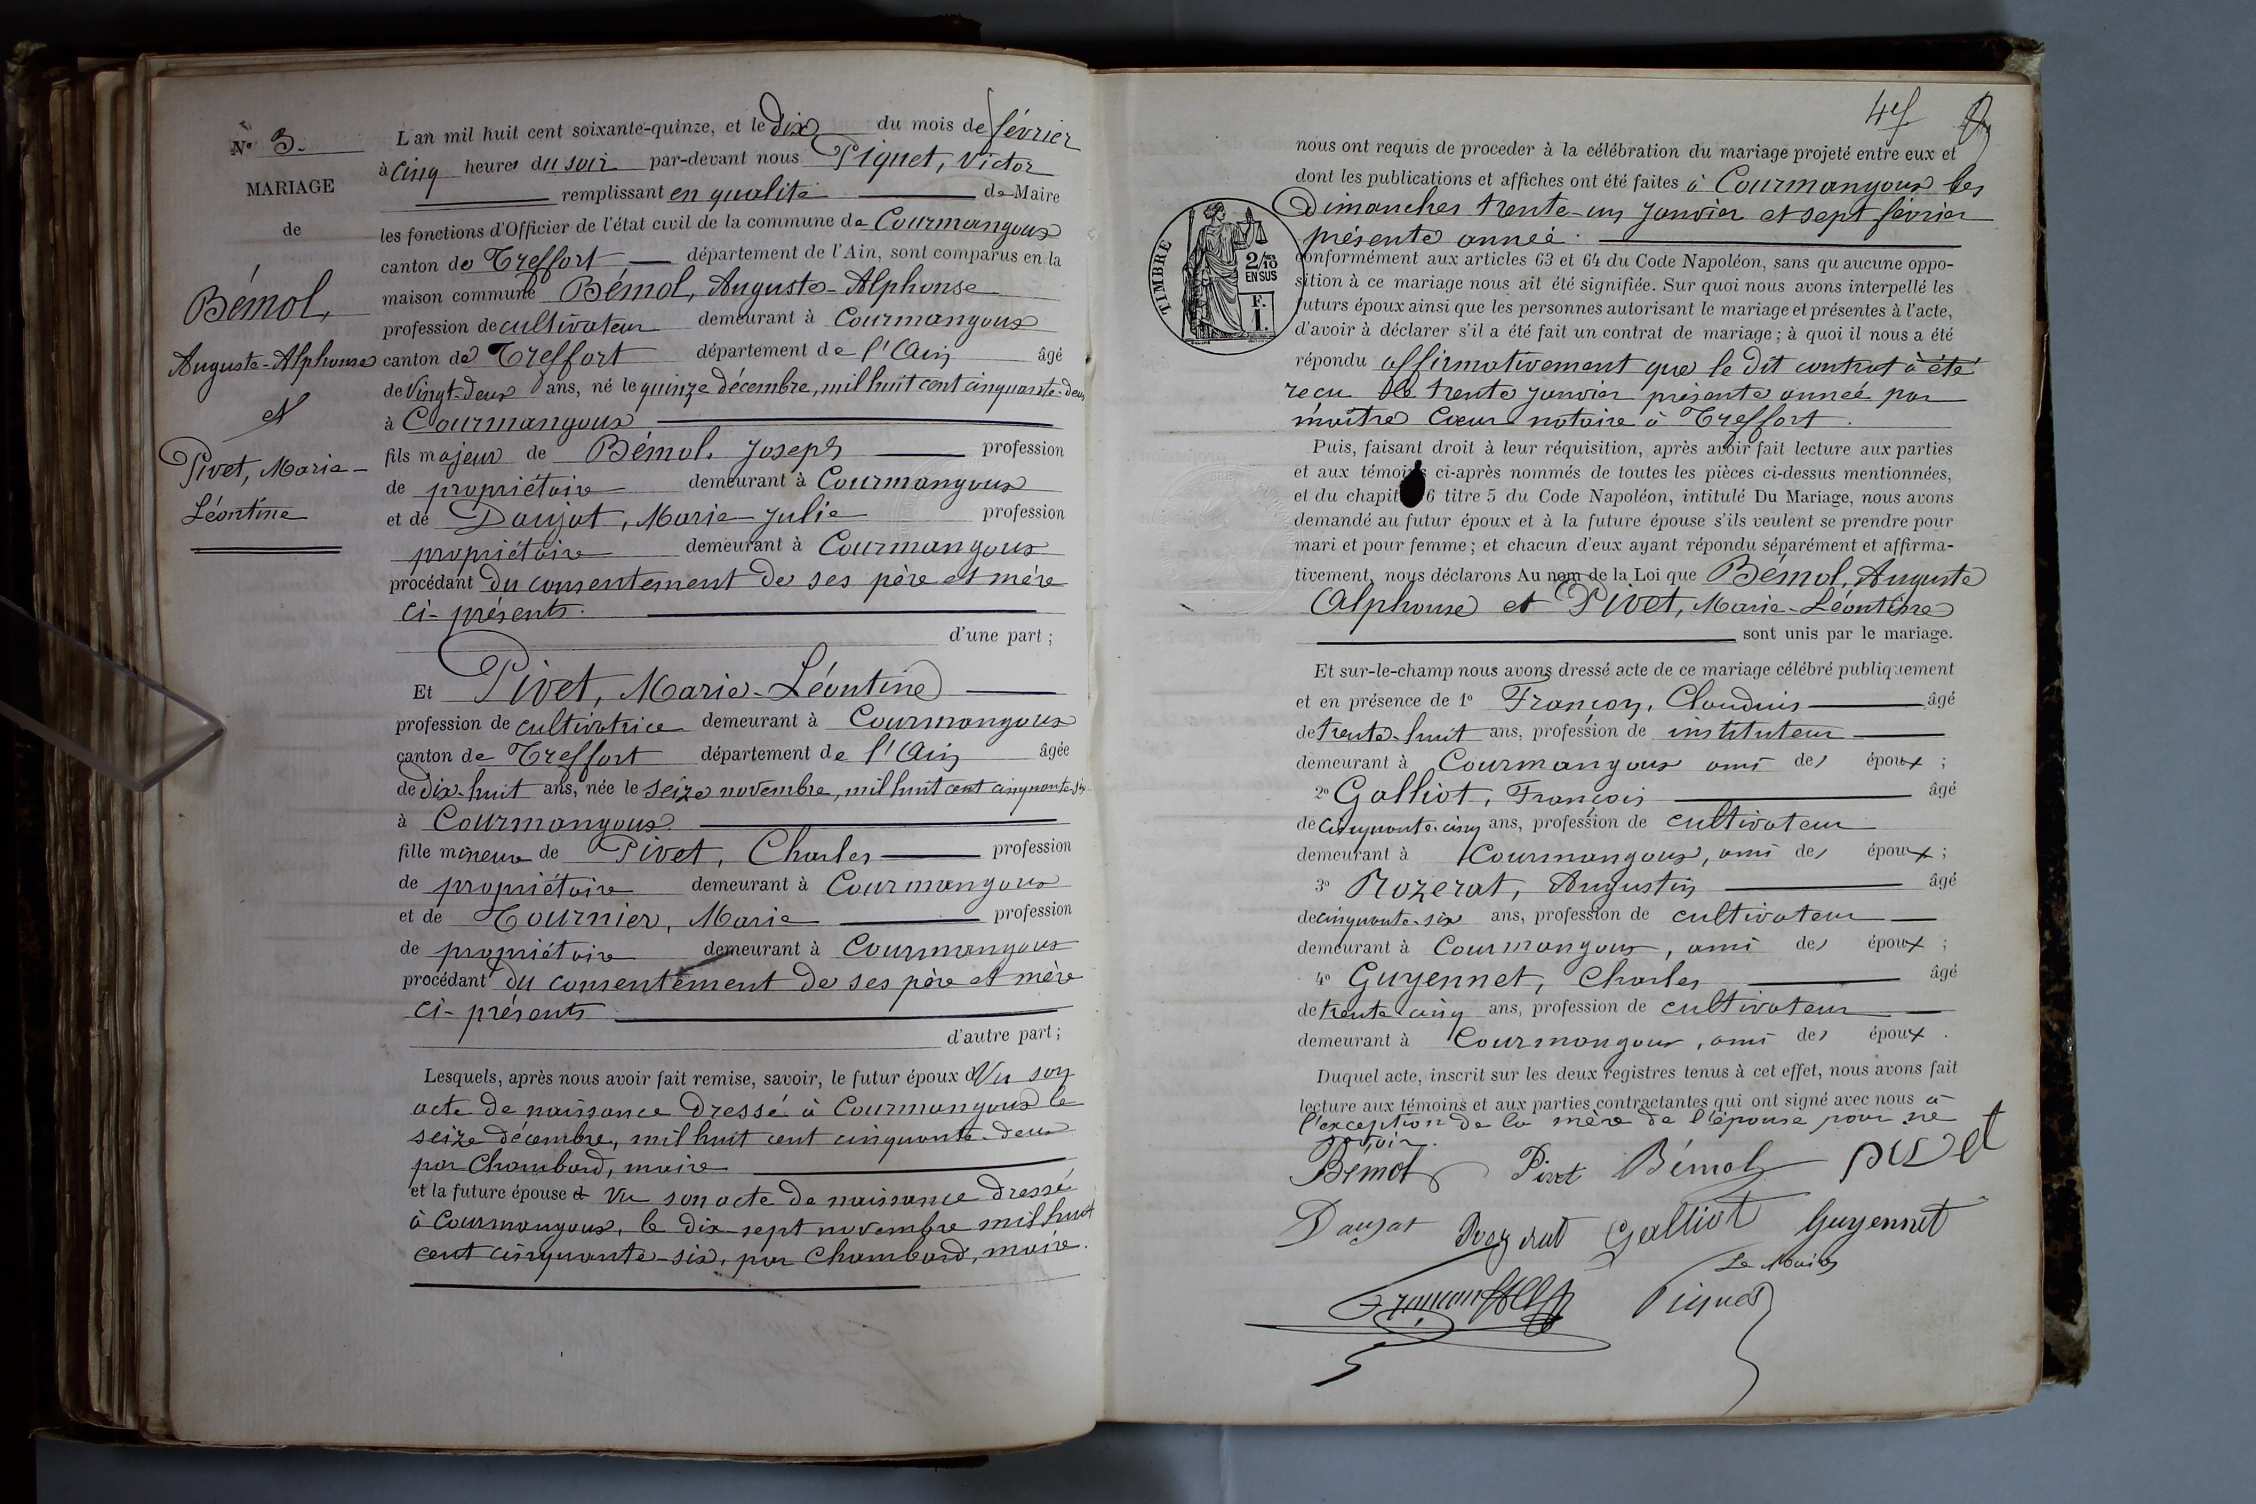 N° 3.
MARIAGE
de
Bémol,
Auguste-Alphonse
et
Pivet, Marie-
Léontine
L'an mil huit cent soixante-quinze, et le dix du mois de février
à cinq heures du soir par-devant nous Piquet, Victor
remplissant en qualité de Maire
les fonctions d'Officier de l'état civil de la commune de Courmangoux
canton de Treffort département de l'Ain, sont comparus en la
maison commune Bémol, Auguste-Alphonse
profession de cultivateur demeurant à Courmangoux
canton de Treffort département de l'Ain âgé
de vingt-deux ans, né le quinze décembre, mil huit cent cinquante-deux
à Courmangoux
fils majeur de Bémol, Joseph profession
de propriétaire demeurant à Courmangoux
et de Daujat, Marie-Julie profession
propriétaire demeurant à Courmangoux
procédant du consentement de ses père et mère
ci-présents.
d'une part ;
Et Pivet, Marie-Léontine
profession de cultivatrice demeurant à Courmangoux
canton de Treffort département de l'Ain âgée
de dix-huit ans, née le seize novembre, mil huit cent cinquante-six
à Courmangoux
fille mineure de Pivet, Charles profession
de propriétaire demeurant à Courmangoux
et de Tournier, Marie profession
de propriétaire demeurant à Courmangoux
procédant du consentement de ses père et mère
ci-présents
d'autre part ;
Lesquels, après nous avoir fait remise, savoir, le futur époux d Vu son
acte de naissance dressé à Courmangoux le
seize décembre, mil huit cent cinquante-deux
par Chambard, maire
et la future épouse d Vu son acte de naissance dressé
à Courmangoux, le dix-sept novembre mil huit
cent cinquante-six, par Chambard, maire.
nous ont requis de proceder à la célébration du mariage projeté entre eux et
dont les publications et affiches ont été faites à Courmangoux les
Dimanches trente-un janvier et sept février
présente année.
TIMBRE
2/10
EN SUS
F.
1.
conformément aux articles 63 et 64 du Code Napoléon, sans qu'aucune oppo-
sition à ce mariage nous ait été signifiée. Sur quoi nous avons interpellé les
futurs époux ainsi que les personnes autorisant le mariage et présentes à l'acte,
d'avoir à déclarer s'il a été fait un contrat de mariage ; à quoi il nous a été
répondu affirmativement que le dit contrat à été
reçu le trente janvier présente année par
maître Cœur notaire à Treffort.
Puis, faisant droit à leur réquisition, après avoir fait lecture aux parties
et aux témoins ci-après nommés de toutes les pièces ci-dessus mentionnées,
et du chapit 6 titre 5 du Code Napoléon, intitulé Du Mariage, nous avons
demandé au futur époux et à la future épouse s'ils veulent se prendre pour
mari et pour femme ; et chacun d'eux ayant répondu séparément et affirma-
tivement, nous déclarons Au nom de la Loi que Bémol, Auguste
Alphonse et Pivet, Marie-Léontine
sont unis par le mariage.
Et sur-le-champ nous avons dressé acte de ce mariage célébré publiquement
et en présence de 1° Françon, Claudius âgé
de trente-huit ans, profession de instituteur
demeurant à Courmangoux ami des époux ;
2° Galliot, François âgé
de cinquante-cinq ans, profession de cultivateur
demeurant à Courmangoux, ami des époux ;
3° Rozerat, Augustin âgé
de cinquante-six ans, profession de cultivateur
demeurant à Courmangoux, ami des époux ;
4° Guyennet, Charles âgé
de trente-cinq ans, profession de cultivateur
demeurant à Courmangoux, ami des époux.
Duquel acte, inscrit sur les deux registres tenus à cet effet, nous avons fait
lecture aux témoins et aux parties contractantes qui ont signé avec nous à
l'exception de la mère de l'épouse pour ne
savoir.
Bémol Pivet Bémol pivet
Daujat Rozerat Galliot Guyennet
Le Maire
Françon Piquet